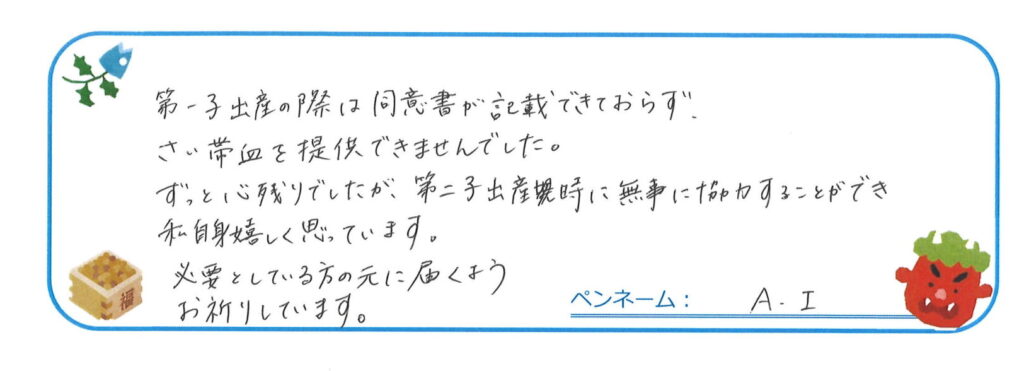 第一子出産の際は同意書が記載できておらず、
さい帯血を提供できませんでした。
ずっと心残りでしたが、第二子出産時に無事に協力することができ
私自身嬉しく思っています。
必要としている方の元に届くよう
お祈りしています。
ペンネーム： A.I
福